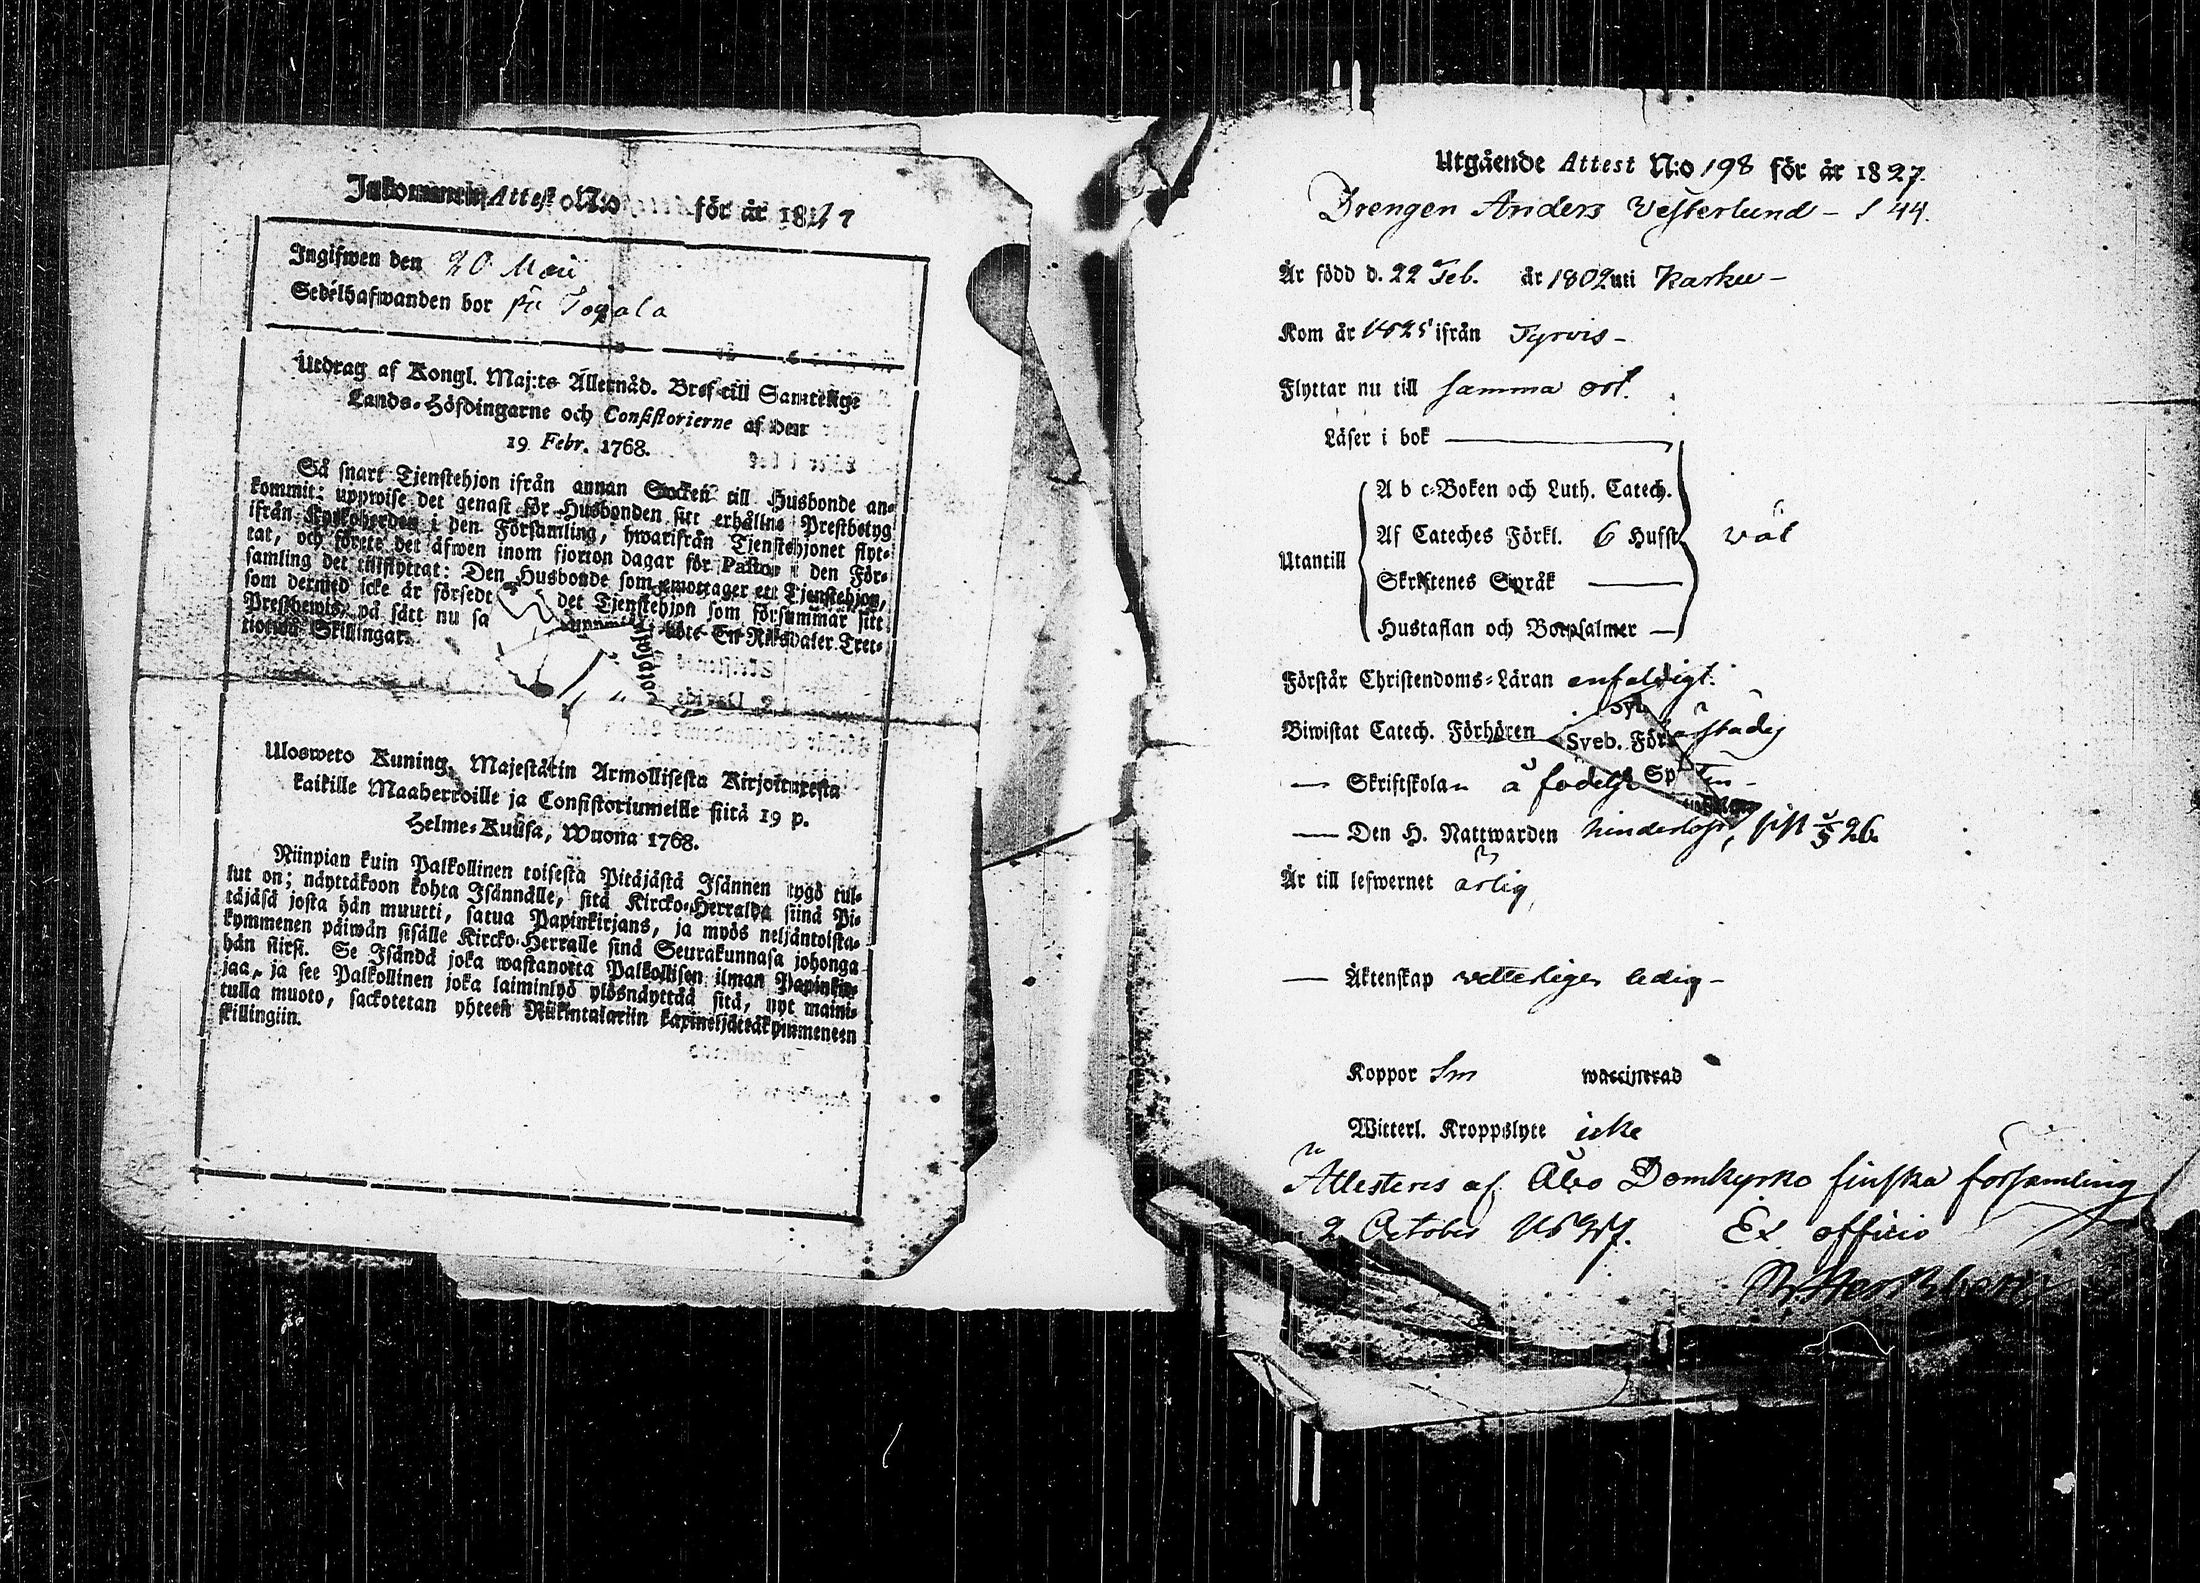 Inkommen Attest N:o för år 1827
Ingifwen den 20 Maii
Sedelhafwanden bor på Topala
Utdrag af Kongl. Maj:ts Allernåd. Bref till Samtelige
Lands-Höfdingarne och Consistorierne af den
19 Febr. 1768.
Så snart Tjenstehjon ifrån annan Socken till Husbonde an-
kommit: uppwise det genast för Husbonden sitt erhållne Prestbetyg
ifrån Kyrkoherden i den Församling, hwarifrån Tjenstehjonet flyt-
tat, och förete det äfwen inom fjorton dagar för Pastor i den För-
samling det tillflyttat: Den Husbonde som emottager ett Tjenstehjon,
som dermed icke är försedt det Tjenstehjon som försummar sitt
Prestbewis på sätt nu sa böte En Riksdaler Tret-
tiotwå Skillingar.
Ulosweto Kuning. Majestätin Armollisesta Kirjoituxesta
kaikille Maaherroille ja Consistoriumeille siitä 19 p.
Helme-Kuusa, Wuona 1768.
Niinpian kuin Palkollinen toisesta Pitäjästä Isännen tygö tul-
lut on; näyttäkoon kohta Isännälle, sitä Kircko-Herralda siinä Pi-
täjäsä josta hän muutti, satua Papinkirjans, ja myös neljäntoista-
kymmenen päiwän sisälle Kircko-Herralle sinä Seurakunnasa johonga
hän siirsi. Se Isändä joka wastanotta Palkollisen ilman Papinkir-
jaa, ja see Palkollinen joka laiminlyö ylösnäyttää sitä, nyt maini-
tulla muoto, sackotetan yhteen Riikintalariin kaxineljättäkymmeneen
skillingiin.
Utgående Attest N:o 198 för år 1827.
Drengen Anders Vesterlund – S 44.
Är född d. 22 Feb. år 1802 uti Karku –
Kom år 1825 ifrån Tyrvis –
Flyttar nu till samma ort.
Läser i bok
A b c-Boken och Luth. Catech.
Af Cateches Förkl. 6 Hufst. väl
Utantill
Skriftenes Språk
Hustaflan och Botpsalmer
Förstår Christendoms-Läran enfaldigt.
Biwistat Catech. Förhören Sveb. För
— Skriftskolan å födelse Sp
— Den H. Nattwarden hinderlöst, sist 5/5 26.
Är till lefwernet ärlig
— Äktenskap vetterligen ledig –
Koppor waccinerad
Witterl. Kroppslyte icke
Attesteres af Åbo Domkyrko finska församling
2 October 1827. Ex officio